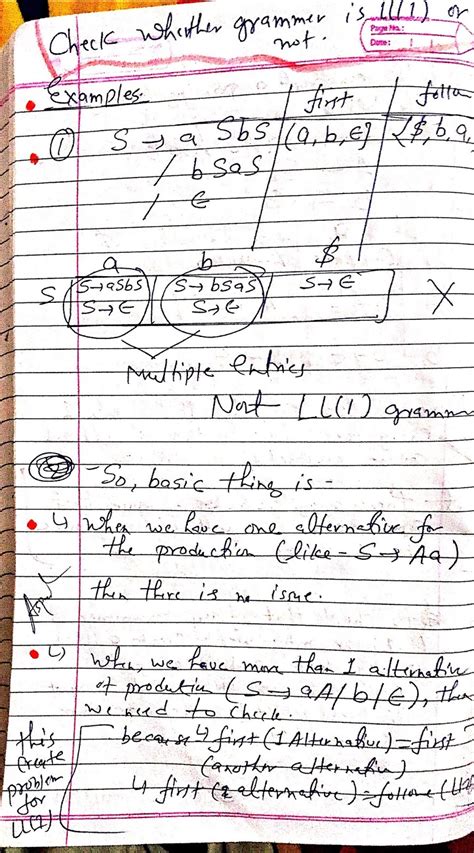 Check whether grammer is LL(1) or
not.
Page No.:
Date:
Examples
first follow
① S → a SbS {a, b, ϵ} {$, b, a,
/ bSaS
/ ϵ
a b $
S S→aSbS S→bSaS S→ϵ X
S→ϵ S→ϵ
Multiple Entries
Not LL(1) gramm
- So, basic thing is -
↳ When we have one alternative for
the production (like - S → Aa)
then there is no issue.
↳ When, we have more than 1 alternative
of production (S → aA/b/ϵ), then
we need to check.
this because ↳ first (1 Alternative) = first
create (another alternative)
problem ↳ first (2 alternative) = follow (LHS
for
LL(1)